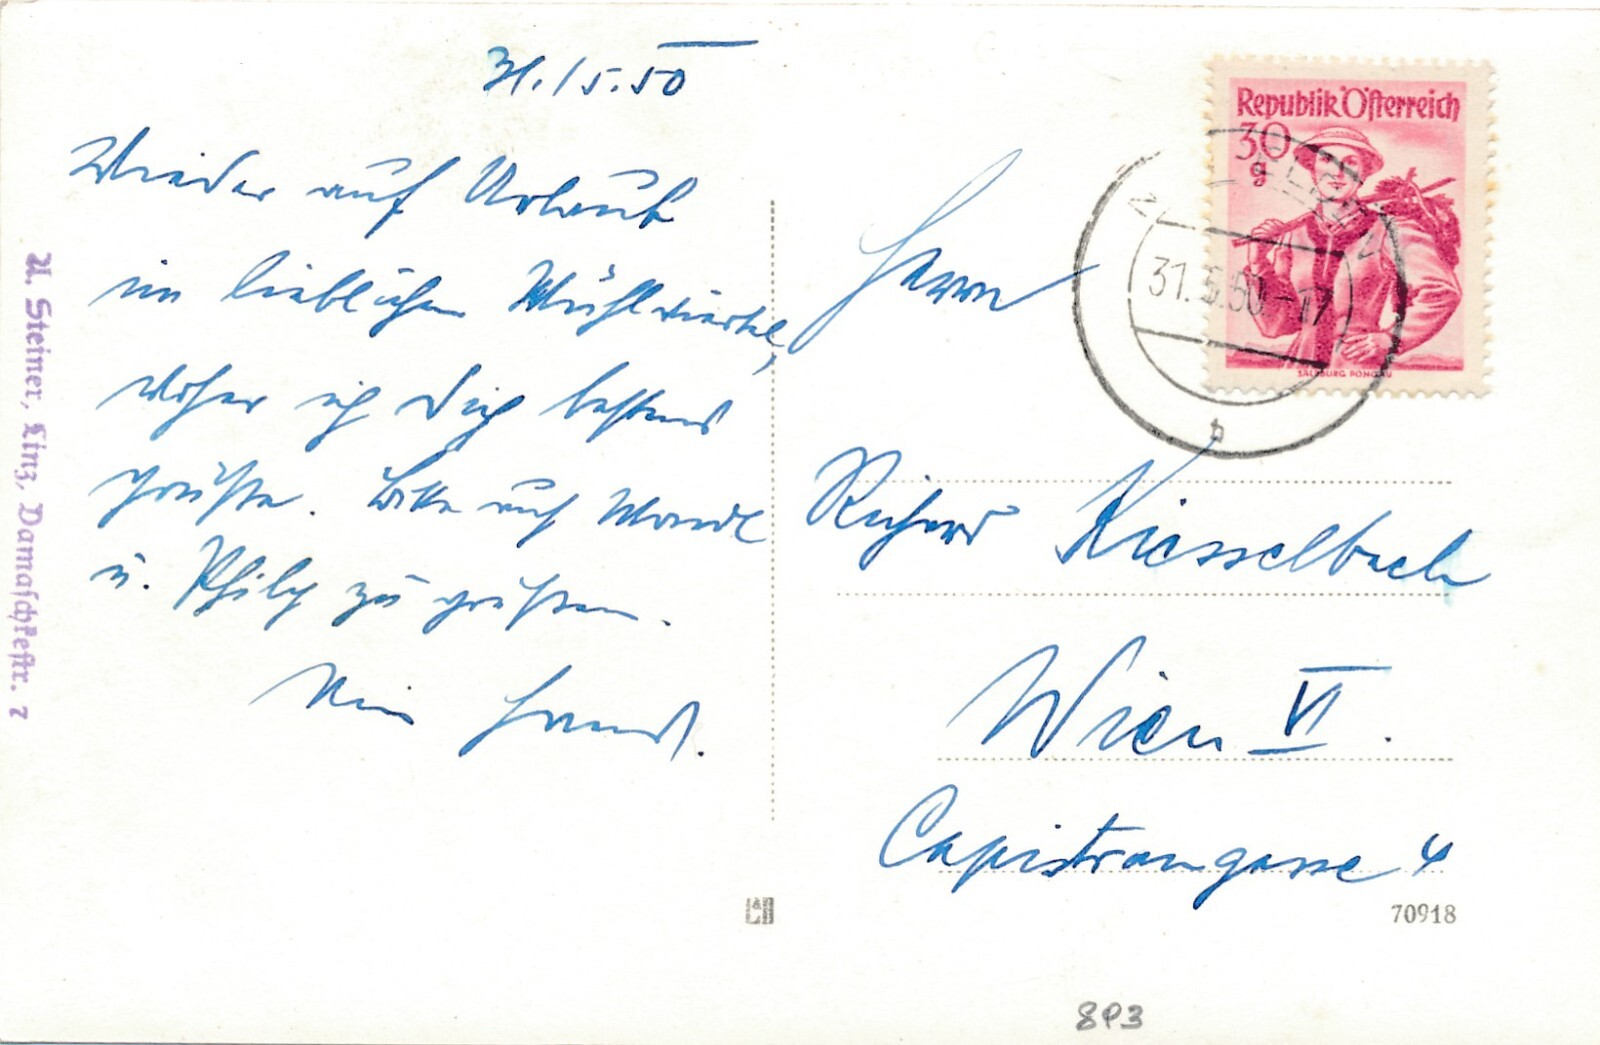 31./5.50
Wieder auf Urlaub
im lieblichen Mühlviertel,
woher ich Dich bestens
grüße. Bitte auch
u. zu grüßen.
Dein
A. Steiner, Linz, Damaschkestr. 7
Republik Österreich
30
g
SALZBURG PONGAU
31.5.50-17
b
Herrn
Richard Kiesselbach
Wien VI.
Capistrangasse 4
70918
893